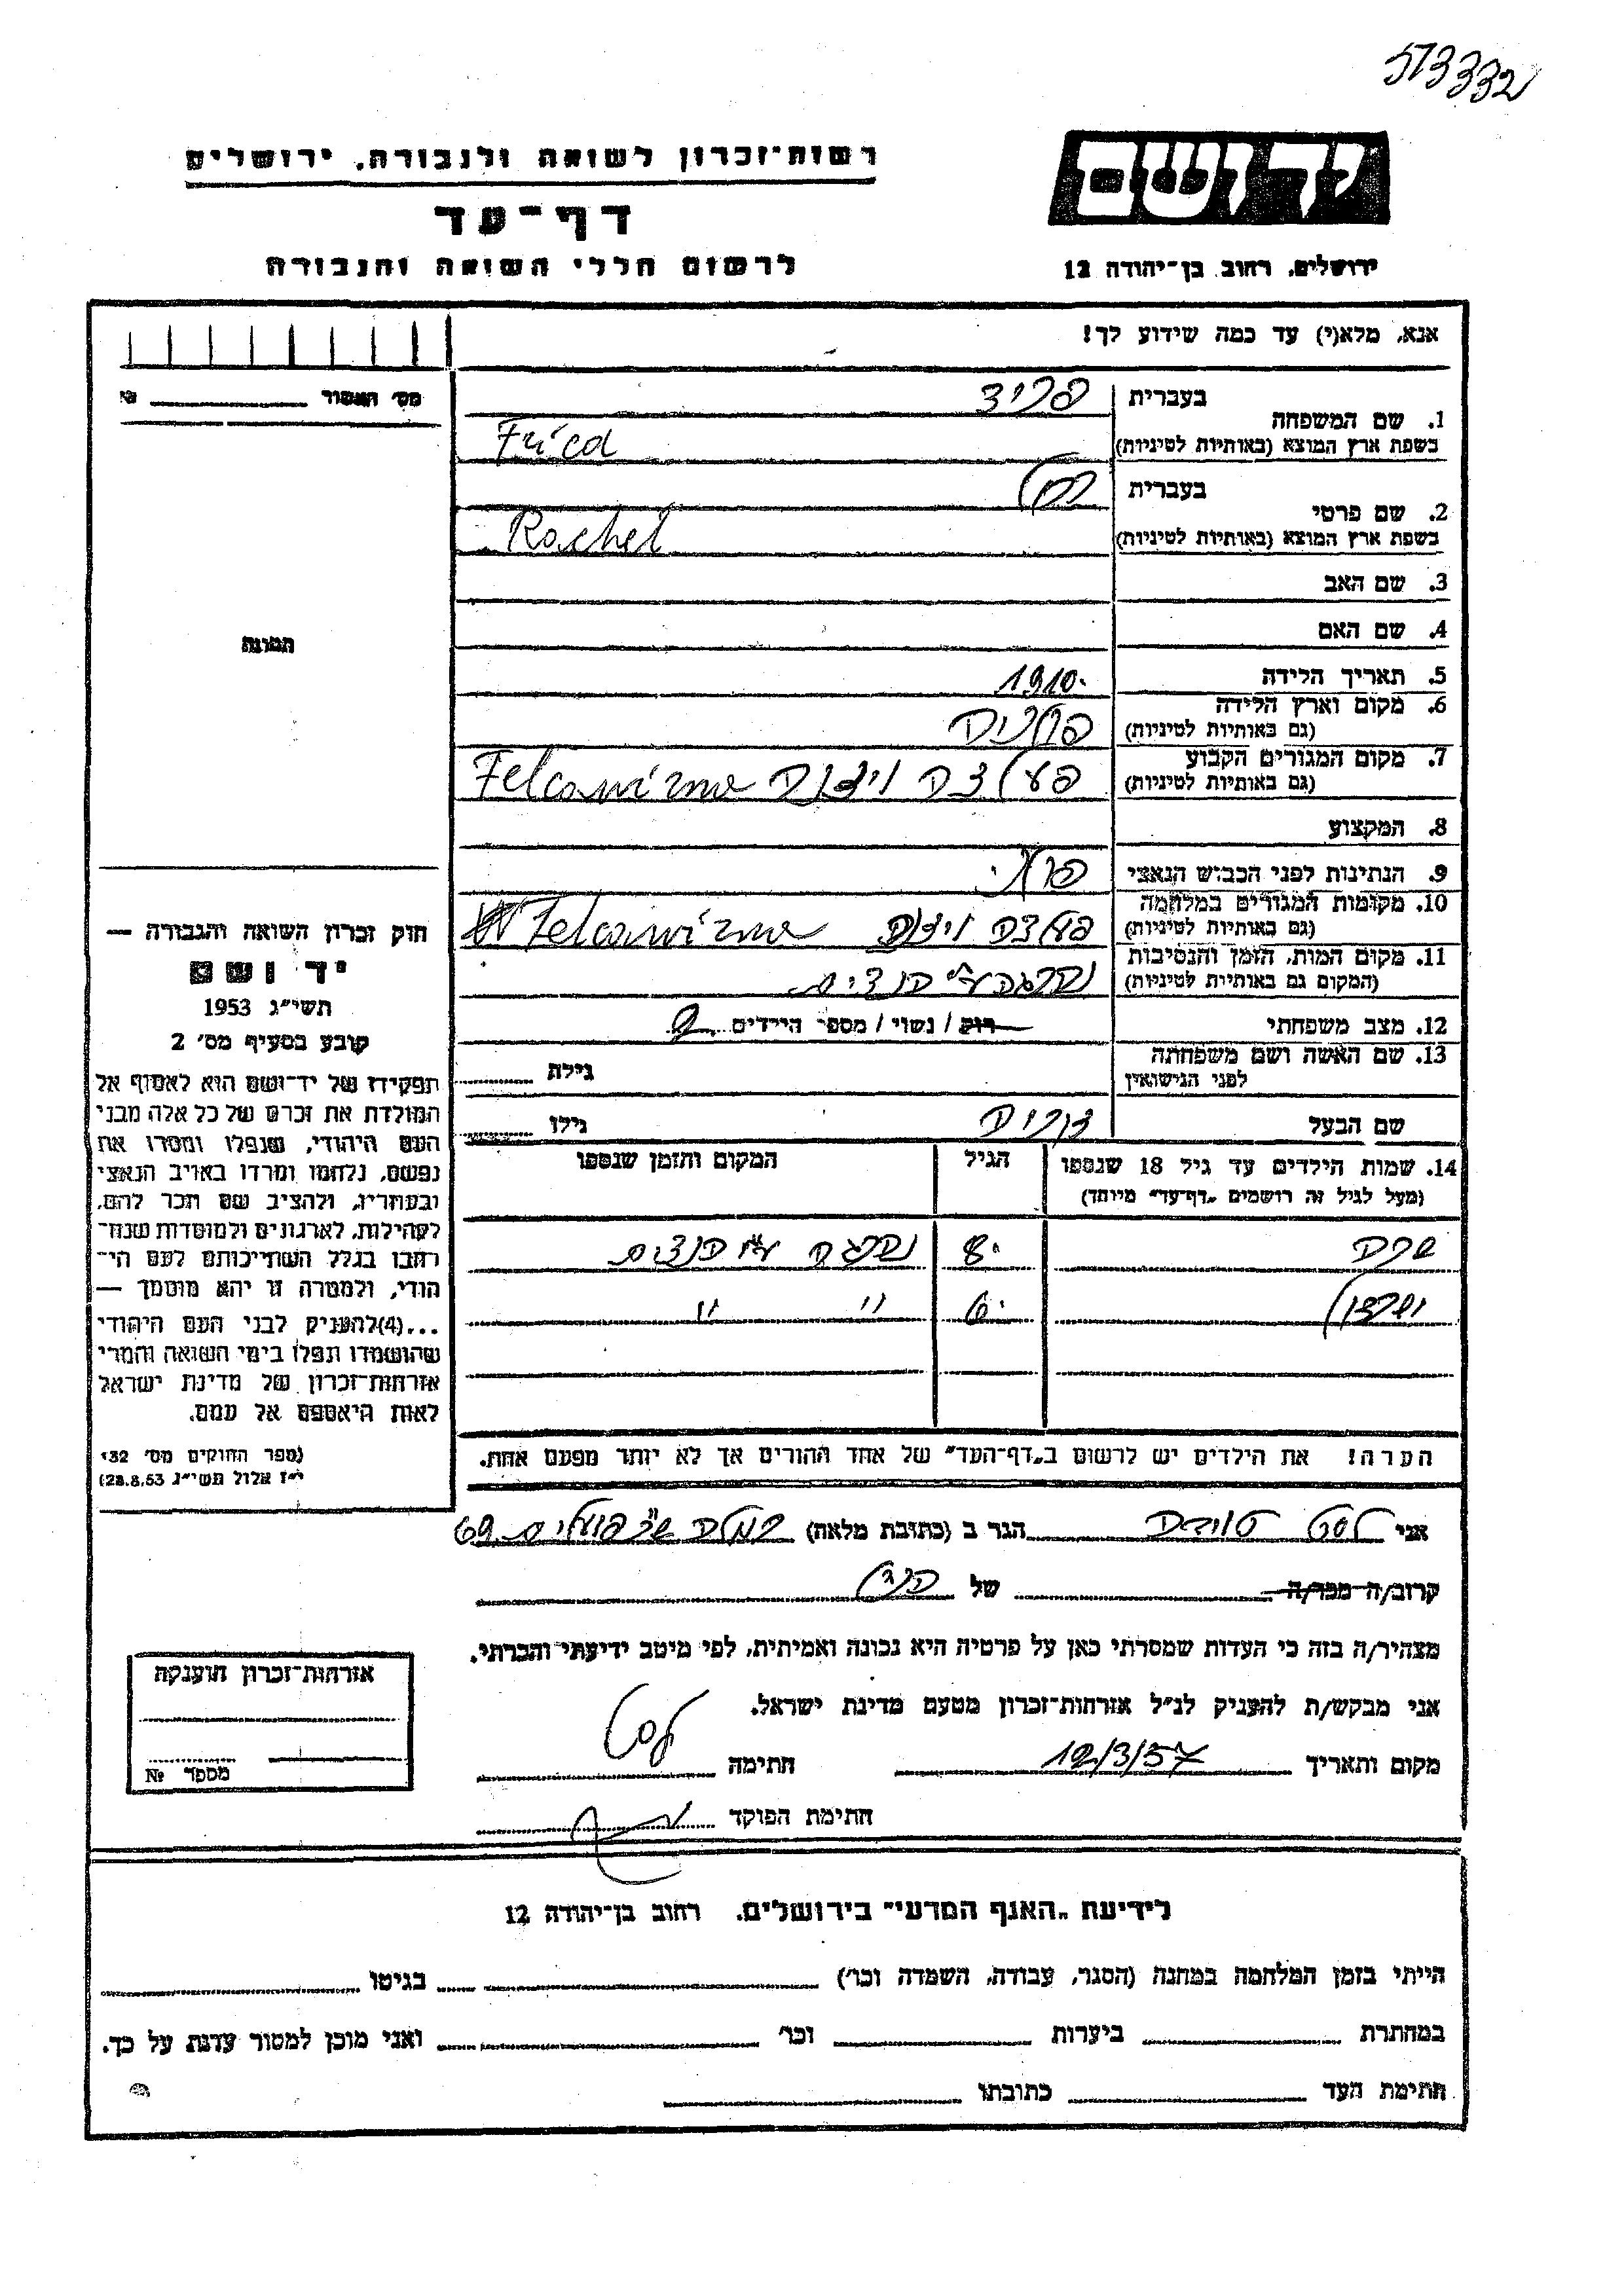 573332
רשות-זכרון לשואה ולגבורה, ירושלים
יד ושם
דף-עד
לרשום חללי השואה והגבורה
ירושלים, רחוב בן-יהודה 12
אנא, מלא(י) עד כמה שידוע לך!
מס' האשור №
1. שם המשפחה
בעברית פריד
בשפת ארץ המוצא (באותיות לטיניות) Fried
2. שם פרטי
בעברית רחל
בשפת ארץ המוצא (באותיות לטיניות) Rachel
3. שם האב
4. שם האם
תמונה
5. תאריך הלידה 1910
6. מקום וארץ הלידה
(גם באותיות לטיניות) פולניה
7. מקום המגורים הקבוע
(גם באותיות לטיניות) Felcowizna
8. המקצוע
9. הנתינות לפני הכבוש הנאצי
10. מקומות המגורים במלחמה
(גם באותיות לטיניות) Felcowizna
11. מקום המות, הזמן והנסיבות
(המקום גם באותיות לטיניות) נהרגה ע"י הנאצים
12. מצב משפחתי רוק / נשוי / מספר הילדים 2
13. שם האשה ושם משפחתה
לפני הנישואין גילה
שם הבעל גילו
14. שמות הילדים עד גיל 18 שנספו הגיל המקום והזמן שנספו
(מעל לגיל זה רושמים "דף-עד" מיוחד)
שרה 8 נהרגה ע"י הנאצים
6 " "
הערה! את הילדים יש לרשום ב"דף-העד" של אחד ההורים אך לא יותר מפעם אחת.
חוק זכרון השואה והגבורה —
יד ושם
תשי"ג 1953
קובע בסעיף מס' 2
תפקידו של יד-ושם הוא לאסוף אל
המולדת את זכרם של כל אלה מבני
העם היהודי, שנפלו ומסרו את
נפשם, נלחמו ומרדו באויב הנאצי
ובעוזריו, ולהציב שם וזכר להם,
לקהילות, לארגונים ולמוסדות שנח-
רבו בגלל השתייכותם לעם הי-
הודי, ולמטרה זו יהא מוסמך —
...(4)להעניק לבני העם היהודי
שהושמדו ונפלו בימי השואה והמרי
אזרחות-זכרון של מדינת ישראל
לאות היאספם אל עמם.
(ספר החוקים מס' 132
י"ז אלול תשי"ג 28.8.53)
אני הגר ב (כתובת מלאה) 69
קרוב/ה מכר/ה של
מצהיר/ה בזה כי העדות שמסרתי כאן על פרטיה היא נכונה ואמיתית, לפי מיטב ידיעתי והכרתי.
אני מבקש/ת להעניק לנ"ל אזרחות-זכרון מטעם מדינת ישראל.
מקום ותאריך 12/3/57 חתימה
חתימת הפוקד
אזרחות-זכרון הוענקה
מספר №
לידיעת "האגף המדעי" בירושלים, רחוב בן-יהודה 12
הייתי בזמן המלחמה במחנה (הסגר, עבודה, השמדה וכו') בגיטו
במחתרת ביערות וכו' ואני מוכן למסור עדות על כך.
חתימת העד כתובתו